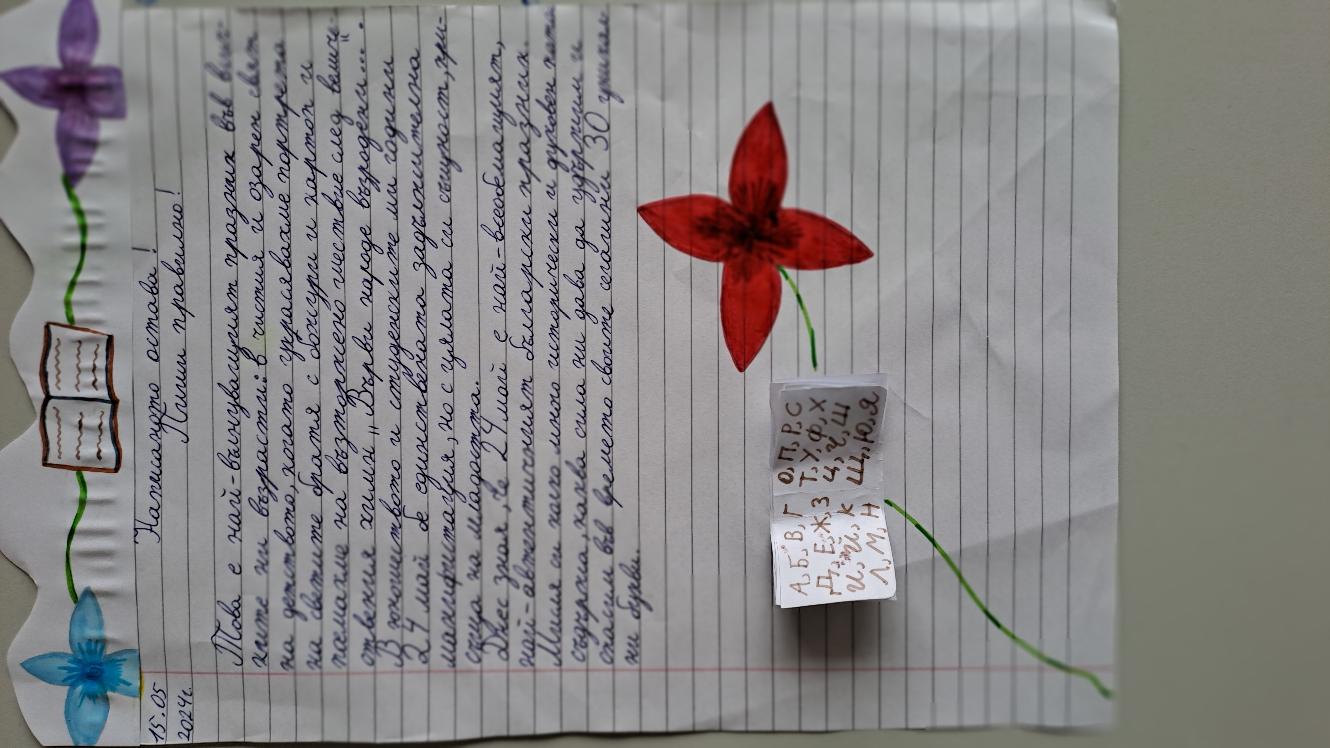 15.05
2024г.
Написаното остава!
Пиши правилно!
Това е най-вълнуващият празник във
ките ни възрасти: в чистия и озарен свят
на детството, когато украсявахме портрета
на светите братя с божури и картон и
поемахме на възторжено шествие след величе-
ствения химн „Върви народе възродени...".
В юношеството и студенските ми години
24 май бе единствената задължителна
манифестация, но с цялата си същност, при-
съща на младостта.
Днес зная, че 24 май е най-всеобемащият,
най-автентичният български празник.
Мисля си колко много исторически и духовен
съдържа, каква сила ни дава да удържим и
опазим във времето своите сегашни 30 уникал
ни букви.
А, Б, В, Г
Д, Е, Ж, З
И, Й, К
Л, М, Н
О, П, Р, С
Т, У, Ф, Х
Ц, Ч, Ш
Щ, Ю, Я